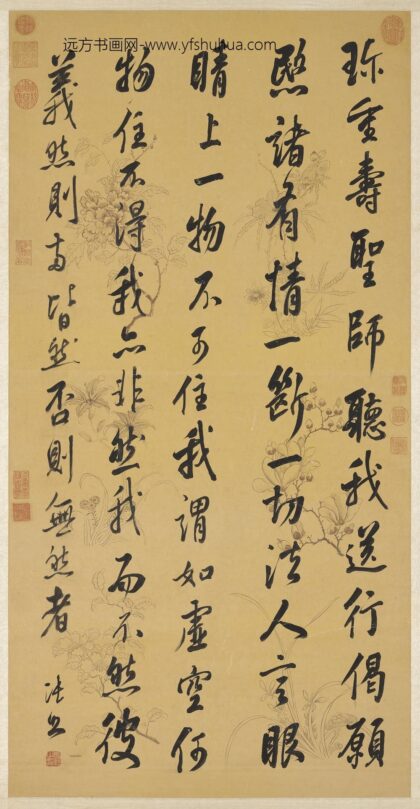 远方书画网-www.yfshuhua.com
珎重壽聖師聽我送行偈願
愍諸有情一斷一切法人言眼
睛上一物不可住我謂如虛空何
物住不得我亦非然我而不然彼
義然則兩皆然否則無然者
張照